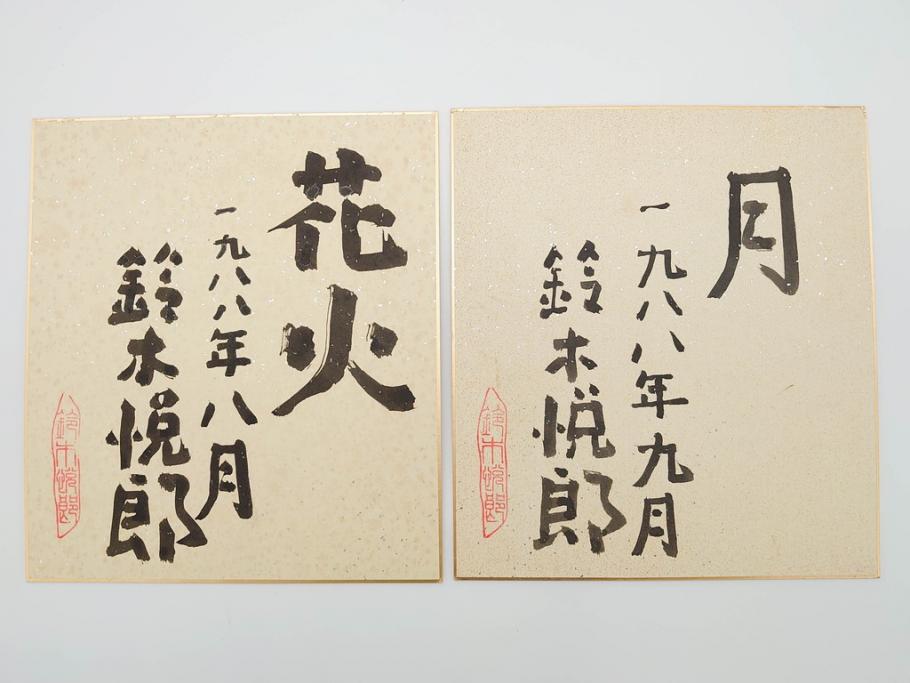 花火
一九八八年八月
鈴木悦郎
鈴木悦郎
月
一九八八年九月
鈴木悦郎
鈴木悦郎